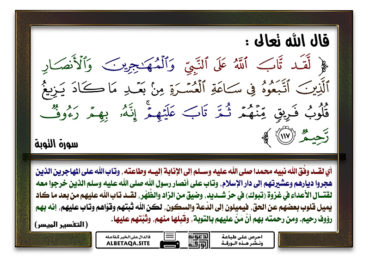 قال الله تعالى :
﴿ لَّقَد تَّابَ اللَّهُ عَلَى النَّبِيِّ وَالْمُهَاجِرِينَ وَالْأَنصَارِ
الَّذِينَ اتَّبَعُوهُ فِي سَاعَةِ الْعُسْرَةِ مِنْ بَعْدِ مَا كَادَ يَزِيغُ
قُلُوبُ فَرِيقٍ مِّنْهُمْ ثُمَّ تَابَ عَلَيْهِمْ ۚ إِنَّهُ بِهِمْ رَءُوفٌ
رَّحِيمٌ ١١٧ ﴾
سورة التوبة
أي لقد وفَّق الله نبيه محمدا صلى الله عليه وسلم إلى الإنابة إليه وطاعته، وتاب الله على المهاجرين الذين
هجروا ديارهم وعشيرتهم إلى دار الإسلام، وتاب على أنصار رسول الله صلى الله عليه وسلم الذين خرجوا معه
لقتال الأعداء في غزوة (تبوك) في حرٍّ شديد، وضيق من الزاد والظَّهْر، لقد تاب الله عليهم من بعد ما كاد
يميل قلوب بعضهم عن الحق، فيميلون إلى الدَّعة والسكون، لكن الله ثبَّتهم وقوَّاهم وتاب عليهم، إنه بهم
رؤوف رحيم. ومن رحمته بهم أنْ مَنَّ عليهم بالتوبة، وقبلها منهم، وثبَّتهم عليها.
(التفسير الميسر)
احرص على طباعة
ونشر هذه الورقة
فالدال على الخير كفاعله
ALBETAQA.SITE